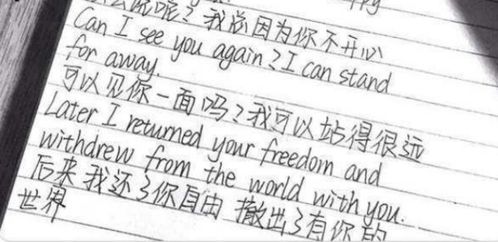 么说呢?我总因为你不开心
Can I see you again? I can stand
for away.
可以见你一面吗?我可以站得很远
Later I returned your freedom and
withdrew from the world with you.
后来我还了你自由 撤出了有你的
世界